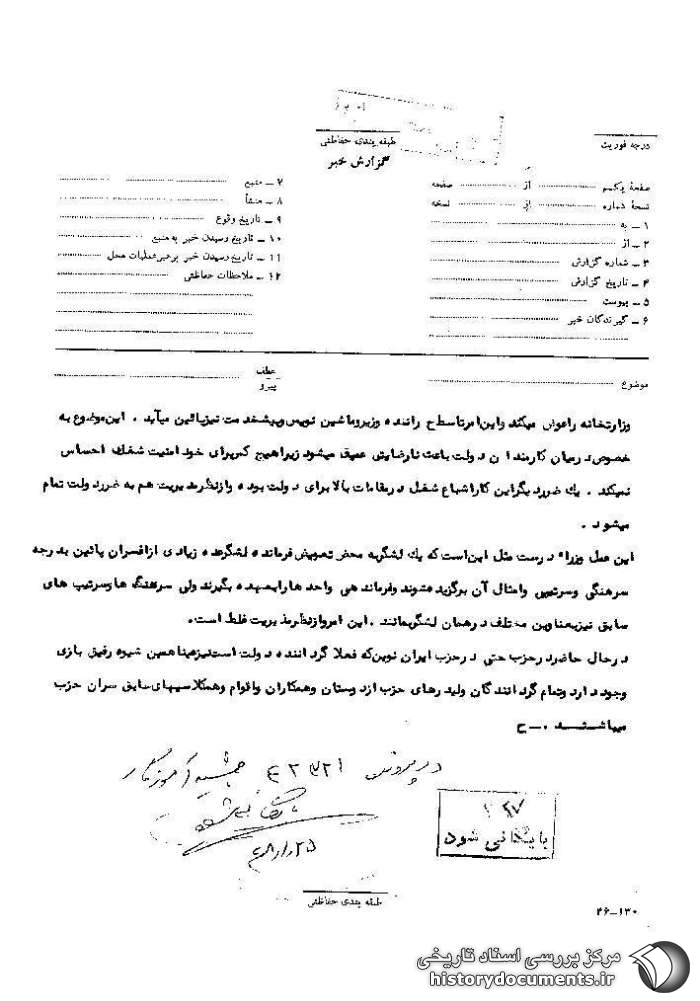 درجه فوریت
طبقه بندی حفاظتی
گزارش خبر
صفحهٔ یکم ........ از ........ صفحه
نسخهٔ شماره ........ از ........ نسخه
۱ – به
۲ – از
۳ – شماره گزارش
۴ – تاریخ گزارش
۵ – پیوست
۶ – گیرندگان خبر
۷ – منبع
۸ – منشأ
۹ – تاریخ وقوع
۱۰ – تاریخ رسیدن خبر به منبع
۱۱ – تاریخ رسیدن خبر به رهبر عملیات محل
۱۲ – ملاحظات حفاظتی
موضوع
عطف
پیرو
وزارتخانه راعوض میکند واین امرتاسطح راننده وزیروماشین نویس وپیشخدمت نیزپائین میآید . این موضوع به
خصوص درمیان کارمندان دولت باعث نارضایتی عمیق میشود زیراهیچ کس برای خود امنیت شغلی احساس
نمیکند . یک ضرردیگراین کاراشباع شغل درمقامات بالا برای دولت بوده وازنظرمدیریت هم به ضرردولت تمام
میشود .
این عمل وزراء درست مثل این است که یک لشگربه محض تعویض فرمانده لشگرعده زیادی ازافسران پائین بدرجه
سرهنگی وسرتیپی وامثال آن برگزیده شوند وفرماندهی واحدهارابعهده بگیرند ولی سرهنگ هاوسرتیپ های
سابق نیزبعناوین مختلف درهمان لشگربمانند . این امرازنظرمدیریت غلط است.
درحال حاضردرحزب حتی درحزب ایران نوین که فعلا گرداننده دولت است نیزعینا همین شیوه رفیق بازی
وجود دارد وتمام گردانندگان ولیدرهای حزب ازدوستان وهمکاران واقوام وهمکلاسیهای سابق سران حزب
میباشند . – ح
در پرونده ۴۲۳۲۱ جمشید آموزگار
بایگانی شود
۴۸/۱/۲۵
بایگانی شود
طبقه بندی حفاظتی
۲۶–۱۳۰
مرکز بررسی اسناد تاریخی
historydocuments.ir